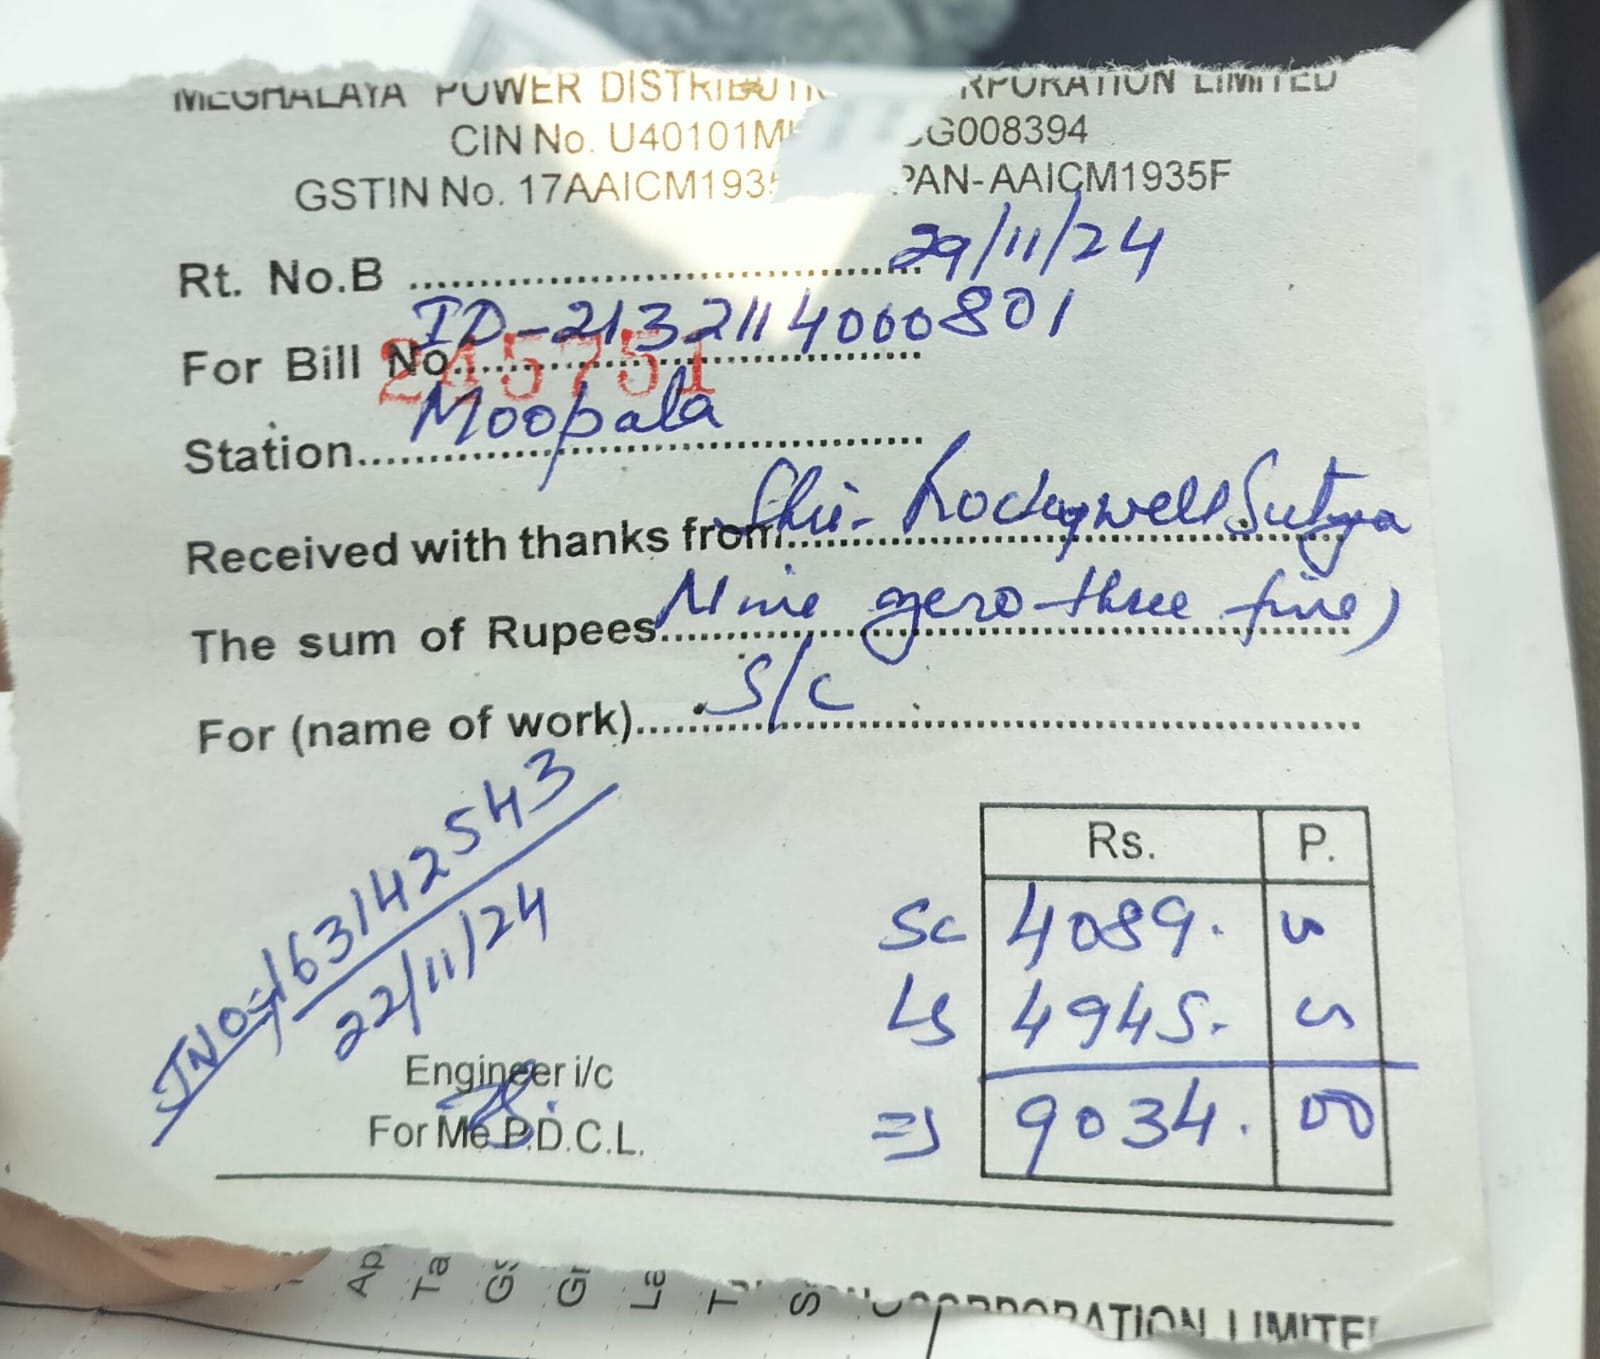 MEGHALAYA POWER DISTRIBUTI RPORATION LIMITED
CIN No. U40101M SG008394
GSTIN No. 17AAICM193 PAN-AAICM1935F
Rt. No.B .......... 29/11/24
ID-2132114000801
For Bill No..........
245751
Station.......... Moopala
Received with thanks from.......... Shri- Rockywell Sutnga
The sum of Rupees.......... Nine zero three five)
For (name of work).......... S/C
163142543
22/11/24
Rs. P.
SC 4089.
LS 4945.
9034. 00
Engineer i/c
For Me.P.D.C.L.
Ap
Ta
Gs
La
T
S
CORPORATION LIMITE